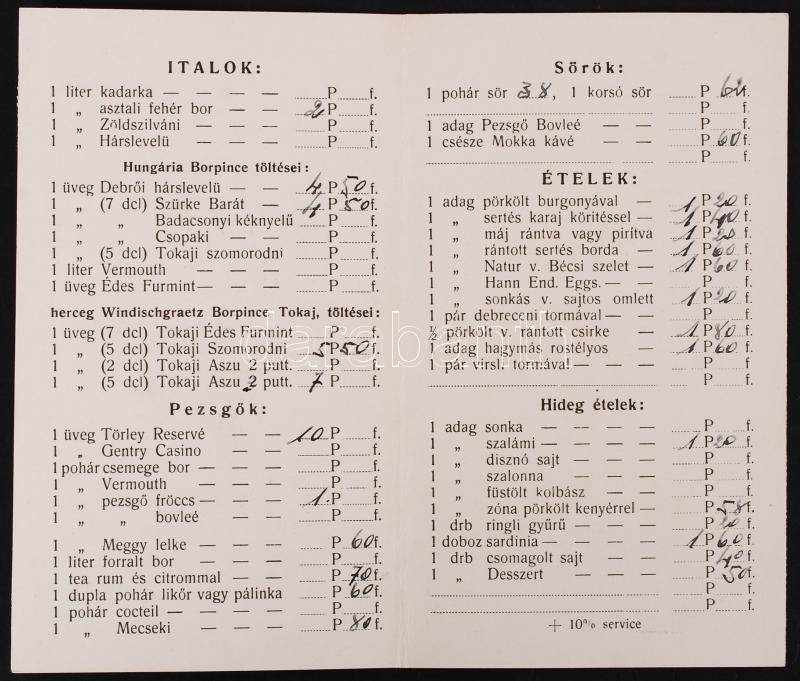 ITALOK:
1 liter kadarka — — — — P f.
1 „ asztali fehér bor — — — 2 P f.
1 „ Zöldszilváni — — — P f.
1 „ Hárslevelü — — — P f.
Hungária Borpince töltései:
1 üveg Debrői hárslevelü — — 4 P 50 f.
1 „ (7 dcl) Szürke Barát — — 4 P 50 f.
1 „ „ Badacsonyi kéknyelű P f.
1 „ „ Csopaki — — P f.
1 „ (5 dcl) Tokaji szomorodni P f.
1 liter Vermouth — — — — P f.
1 üveg Édes Furmint — — — P f.
herceg Windischgraetz Borpince Tokaj, töltései:
1 üveg (7 dcl) Tokaji Édes Furmint P f.
1 „ (5 dcl) Tokaji Szomorodni 5 P 50 f.
1 „ (2 dcl) Tokaji Aszu 2 putt. P f.
1 „ (5 dcl) Tokaji Aszu 2 putt. 7 P f.
Pezsgők:
1 üveg Törley Reservé — — 10 P f.
1 „ Gentry Casino — — P f.
1 pohár csemege bor — — — P f.
1 „ Vermouth — — — P f.
1 „ pezsgő fröccs — — — 1 P f.
1 „ „ bovleé — — P f.
1 „ Meggy lelke — — — P 60 f.
1 liter forralt bor — — — P f.
1 tea rum és citrommal — — P 70 f.
1 dupla pohár likőr vagy pálinka P 60 f.
1 pohár cocteil — — — — P f.
1 „ Mecseki — — — P 80 f.
Sörök:
1 pohár sör 38, 1 korsó sör P 62 f.
P f.
1 adag Pezsgő Bovleé — — P f.
1 csésze Mokka kávé — — P 60 f.
P f.
ÉTELEK:
1 adag pörkölt burgonyával — 1 P 20 f.
1 „ sertés karaj köritéssel — 1 P 40 f.
1 „ máj rántva vagy pirítva 1 P 20 f.
1 „ rántott sertés borda — 1 P 60 f.
1 „ Natur v. Bécsi szelet — 1 P 60 f.
1 „ Hann End. Eggs. — — P f.
1 „ sonkás v. sajtos omlett 1 P 20 f.
1 pár debreceni tormával — — P f.
½ pörkölt v. rántott csirke — 1 P 80 f.
1 adag hagymás rostélyos — 1 P 60 f.
1 pár virsli tormával — — — P f.
P f.
Hideg ételek:
1 adag sonka — — — — P f.
1 „ szalámi — — — 1 P 20 f.
1 „ disznó sajt — — — P f.
1 „ szalonna — — — P f.
1 „ füstölt kolbász — — P f.
1 „ zóna pörkölt kenyérrel — P 58 f.
1 drb ringli gyűrű — — — P 20 f.
1 doboz sardinia — — — 1 P 60 f.
1 drb csomagolt sajt — — P 40 f.
1 „ Desszert — — — P 50 f.
P f.
P f.
+ 10% service
darabanth